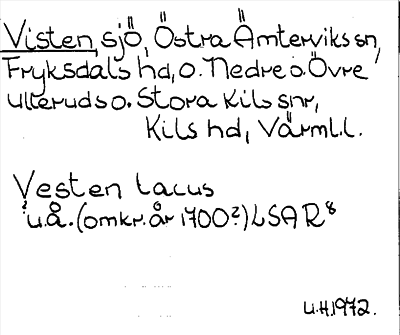 Visten, sjö, Östra Ämterviks sn,
Fryksdals hd, o. Nedre o. Övre
Ulleruds o. Stora Kils snr,
Kils hd, Värml.l.
Vesten lacus
u.å. (omkr. år 1700?) LSA R 8
U.H.1972.